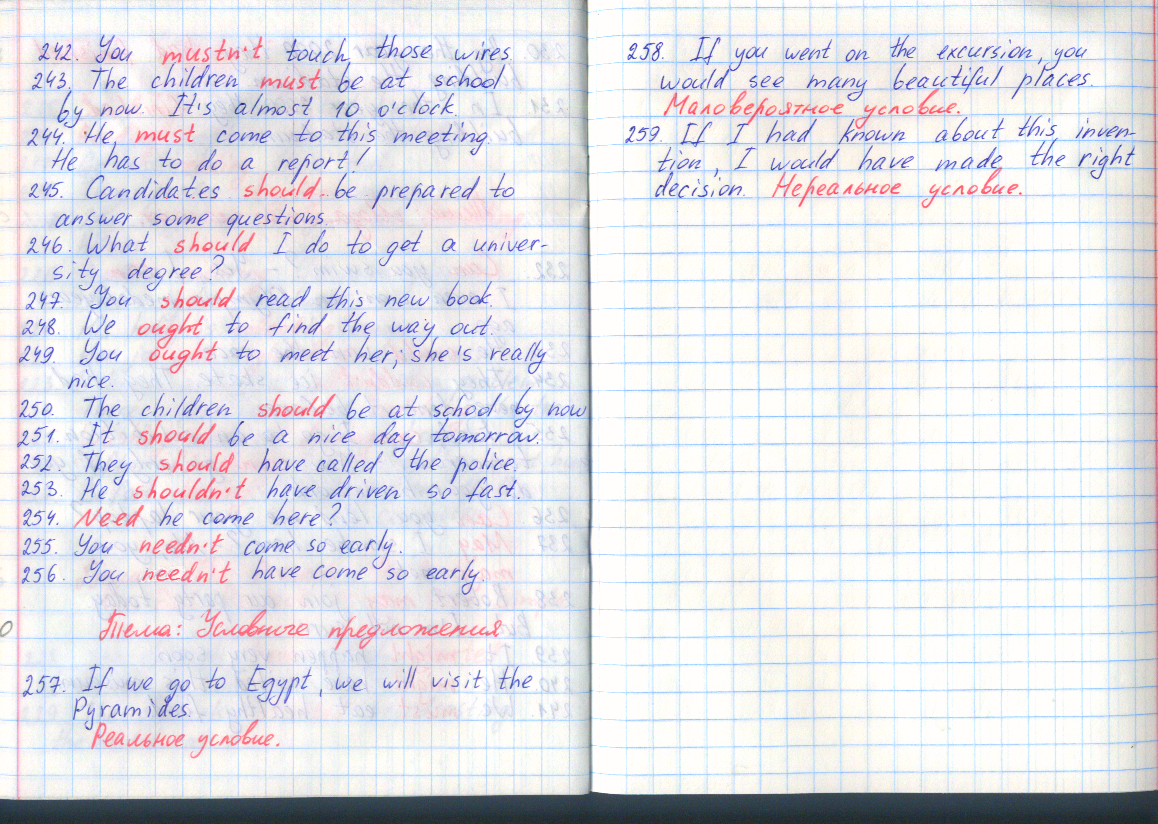 242. You mustn't touch those wires.
243. The children must be at school
by now. It's almost 10 o'clock.
244. He must come to this meeting.
He has to do a report!
245. Candidates should be prepared to
answer some questions.
246. What should I do to get a univer-
sity degree?
247. You should read this new book.
248. We ought to find the way out.
249. You ought to meet her; she's really
nice.
250. The children should be at school by now
251. It should be a nice day tomorrow.
252. They should have called the police.
253. He shouldn't have driven so fast.
254. Need he come here?
255. You needn't come so early.
256. You needn't have come so early
Тема: Условные предложения
257. If we go to Egypt, we will visit the
Pyramides.
Реальное условие.
258. If you went on the excursion, you
would see many beautiful places.
Маловероятное условие.
259. If I had known about this inven-
tion, I would have made the right
decision. Нереальное условие.